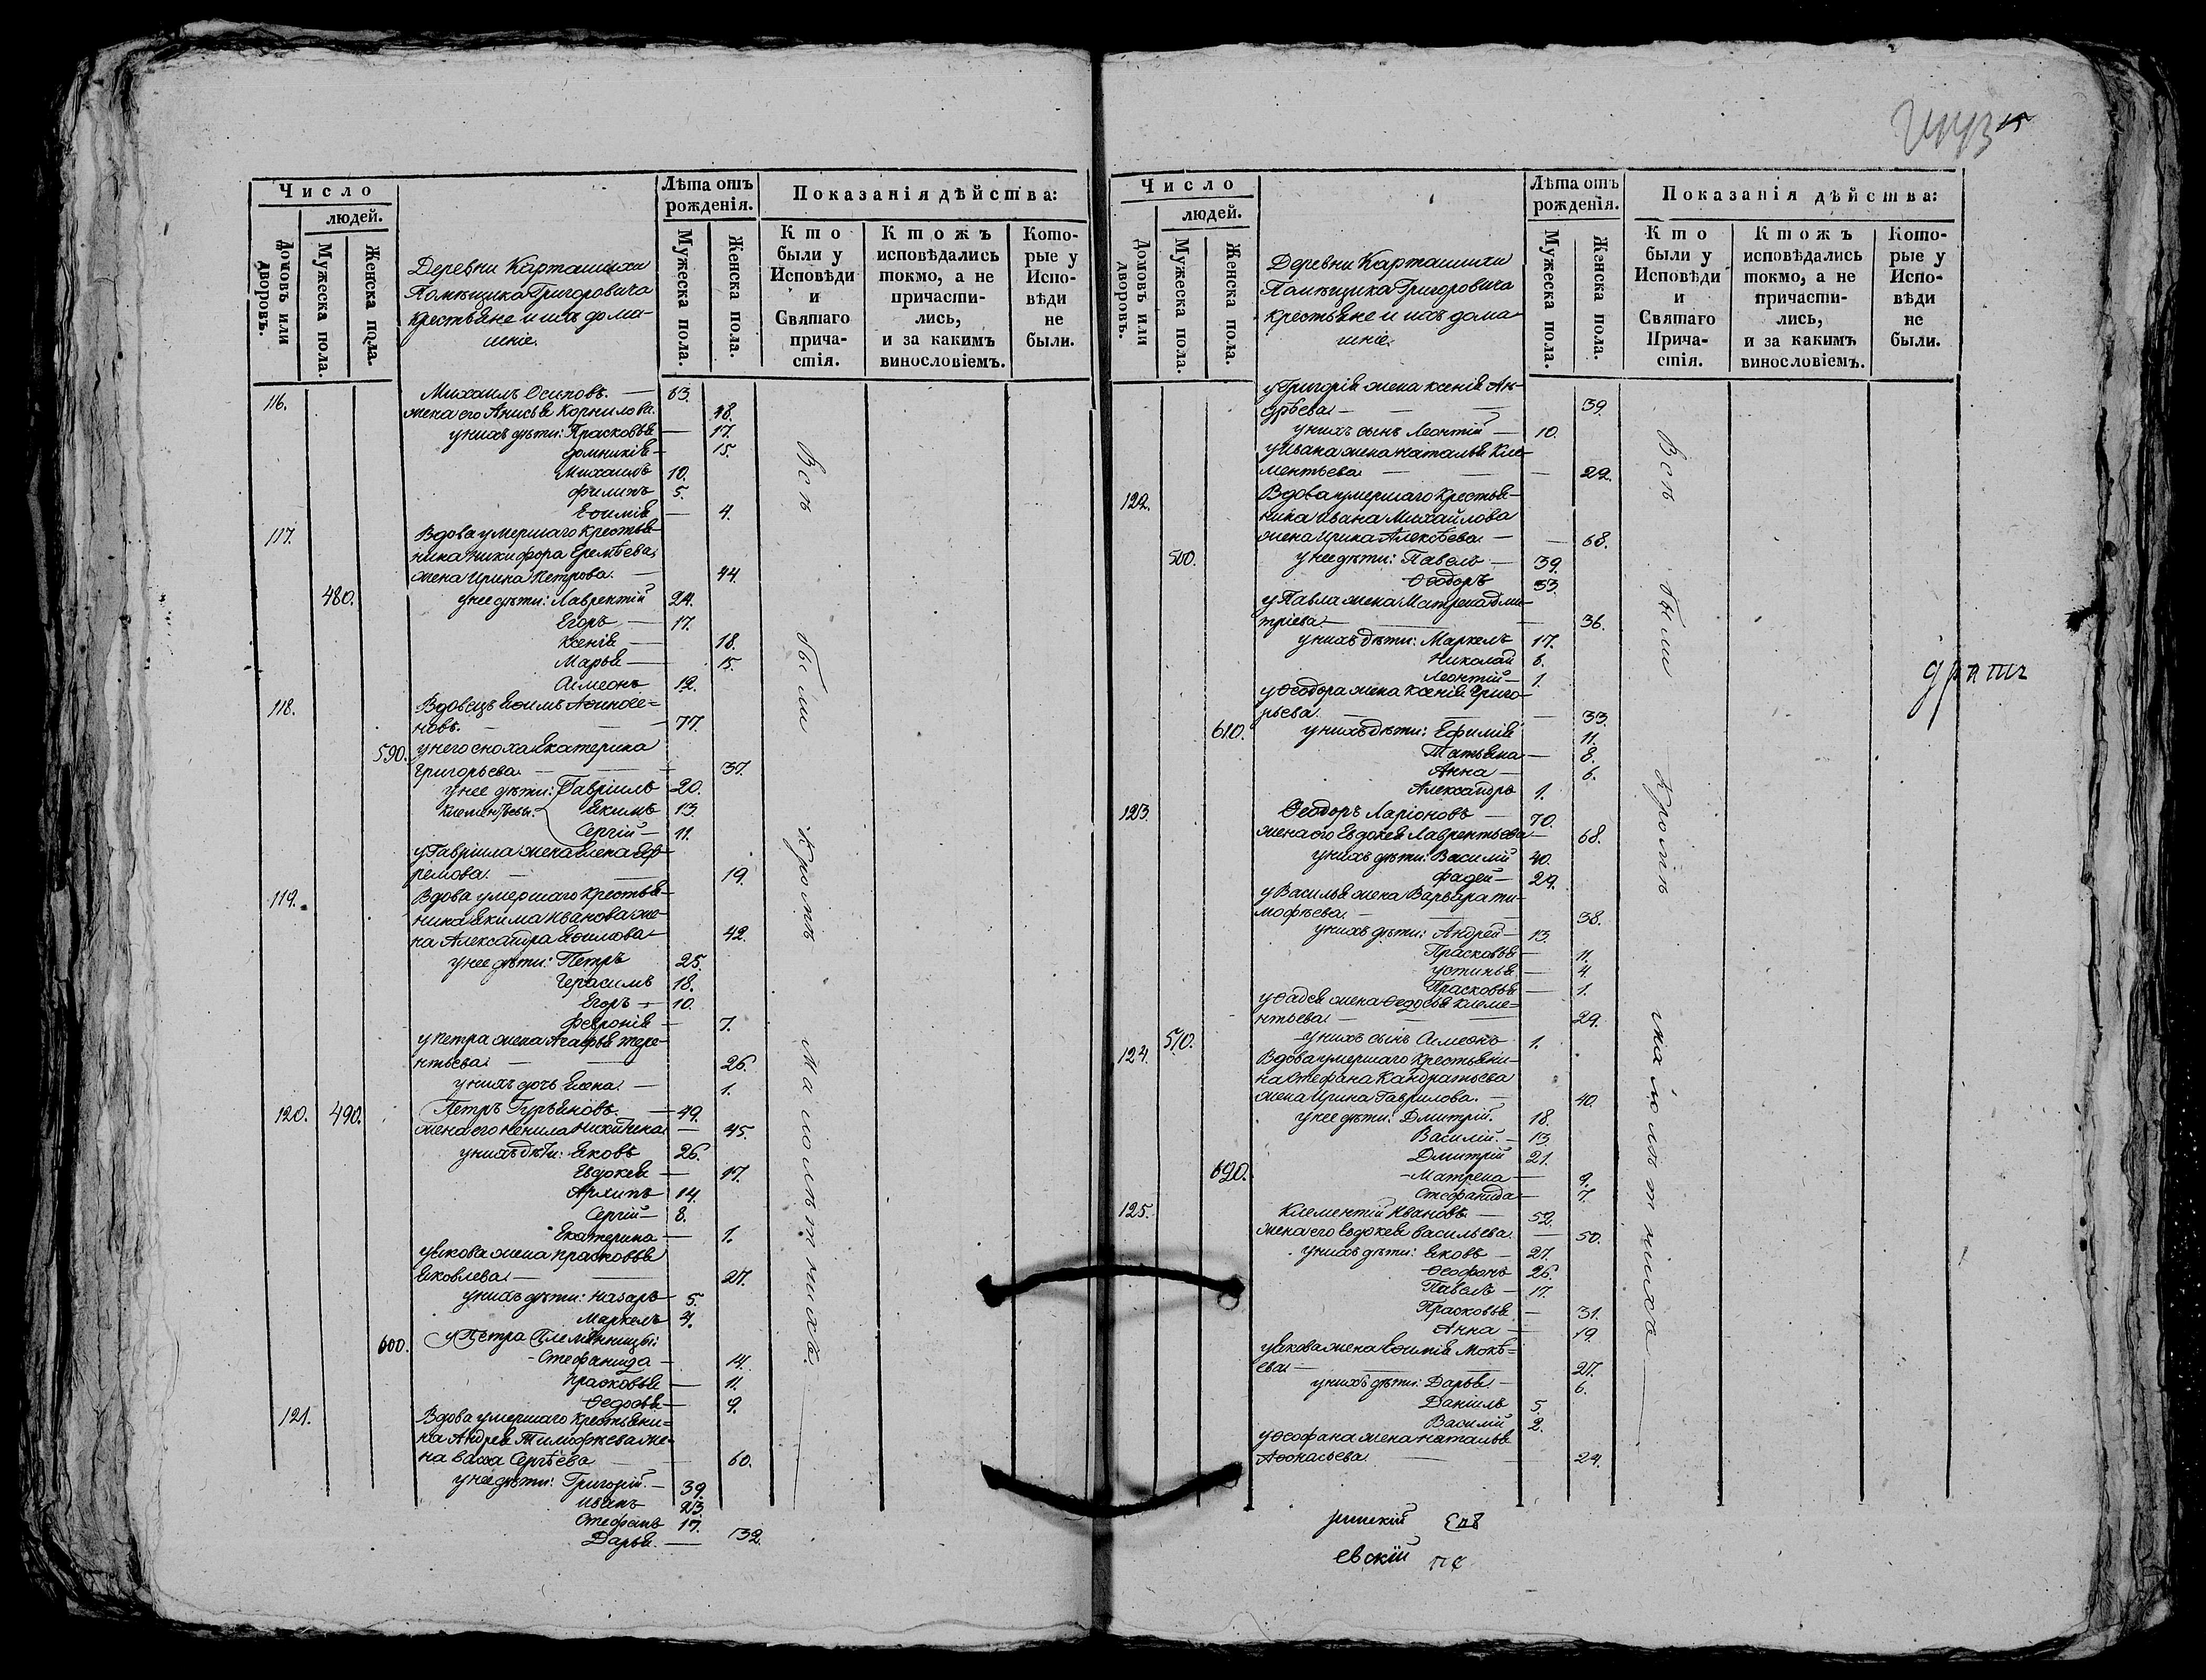 Число
людей.
Домовъ или дворовъ.
Мужеска пола.
Женска пола.
Деревни Карташихи
Помѣщика Григоровича
крестьяне и ихъ дома-
шніе.
Лѣта отъ
рожденія.
Мужеска пола.
Женска пола.
Показанія дѣйства:
Кто
были у
Исповѣди
и
Святаго
прича-
стія.
Ктожъ
исповѣдались
токмо, а не
причасти-
лись,
и за какимъ
винословіемъ.
Кото-
рые у
Испо-
вѣди
не
были.
116. Михаилъ Осиповъ. — 63.
жена его Анисья Корнилова. 48.
у нихъ дѣти: Прасковья — 17.
Домникія — 15.
Михаилъ 10.
Филипъ 5.
Евѳимія — 4.
117. Вдова умершаго крестья-
нина Никифора Еремѣева
жена Ирина Петрова. — 44.
480. у нее дѣти: Лаврентій 24.
Егоръ — 17.
Ксенія — 18.
Марья — 15.
Симеонъ 12.
118. Вдовецъ Евѳимъ
новъ. — 77.
590. у него сноха Екатерина
Григорьева. — 37.
у нее дѣти: Гавріилъ 20.
Клементьевы: Якимъ 13.
Сергій — 11.
у Гавріила жена Елена Еф-
ремова. — 19.
119. Вдова умершаго крестья-
нина Якима Иванова же-
на Александра 42.
у нее дѣти: Петръ 25.
Герасимъ 18.
Егоръ — 10.
Февронія — 7.
у Петра жена Агафья Тере-
нтьева. — 26.
у нихъ дочь Елена. — 1.
120. 490. Петръ Гурьяновъ. — 49.
жена его Ненила Никитина — 45.
у нихъ дѣти: Яковъ 26.
Евдокея — 17.
Архипъ 14.
Сергій — 8.
Екатерина — 1.
у Якова жена Прасковья
Яковлева. — 27.
у нихъ дѣти: Назаръ 5.
Маркелъ 4.
600. у Петра Племянницы:
Стефанида — 14.
Прасковья — 11.
Ѳедосья — 9.
121. Вдова умершаго крестьяни-
на Андрея Тимофѣева же-
на Сергѣева 60.
у нее дѣти: Григорій. — 39.
Иванъ 23.
Стефанъ 17.
Дарья. — 32.
Всѣ были кромѣ малолѣтнихъ.
15
Число
людей.
Домовъ или дворовъ.
Мужеска пола.
Женска пола.
Деревни Карташихи
Помѣщика Григоровича
крестьяне и ихъ дома-
шніе.
Лѣта отъ
рожденія.
Мужеска пола.
Женска пола.
Показанія дѣйства:
Кто
были у
Исповѣди
и
Святаго
Прича-
стія.
Ктожъ
исповѣдались
токмо, а не
причасти-
лись,
и за какимъ
винословіемъ.
Кото-
рые у
Испо-
вѣди
не
были.
у Григорія жена Ксенія Ан-
дрѣева — 39.
у нихъ сынъ Леонтій — 10.
у Ивана жена Наталья Кле-
ментьева — 22.
122. Вдова умершаго крестья-
нина Ивана Михайлова
жена Ирина Алексѣева — 68.
500. у нее дѣти: Павелъ — 39.
Ѳеодоръ 33.
у Павла жена Матрена Дми-
тріева — 36.
у нихъ дѣти: Маркелъ 17.
Николай 6.
Леонтій — 1.
у Ѳеодора жена Ксенія Григо-
рьева. — 33.
610. у нихъ дѣти: Ефимія 11.
Татьяна — 8.
Анна — 6.
Александръ 1.
123. Ѳеодоръ Ларіоновъ — 70.
жена его Евдокея Лаврентьева — 68.
у нихъ дѣти: Василій 40.
Фадей — 29.
у Василья жена Варвара Ти-
мофѣева. — 38.
у нихъ дѣти: Андрей — 13.
Прасковья — 11.
Устинья — 4.
Прасковья — 1.
у Ѳадея жена Ѳедосья Клеме-
нтьева — 29.
510. у нихъ сынъ Симеонъ 1.
124. Вдова умершаго крестьяни-
на Стефана Кандратьева
жена Ирина Гаврилова. — 40.
у нее дѣти: Дмитрій. 18.
Василій. — 13.
Дмитрій 21.
620. Матрена — 9.
Стефанида — 7.
125. Клементій Ивановъ — 52.
жена его Евдокея Васильева. — 50.
у нихъ дѣти: Яковъ — 27.
Ѳеофанъ 26.
Павелъ — 17.
Прасковья — 31.
Анна — 19.
у Якова жена Евѳимія Мокѣ-
ева — 27.
у нихъ дѣти: Дарья — 6.
Даніилъ 5.
Василій 2.
у Ѳеофана жена Наталья
Аѳонасьева. 24.
Всѣ были кромѣ малолѣтнихъ
евскій